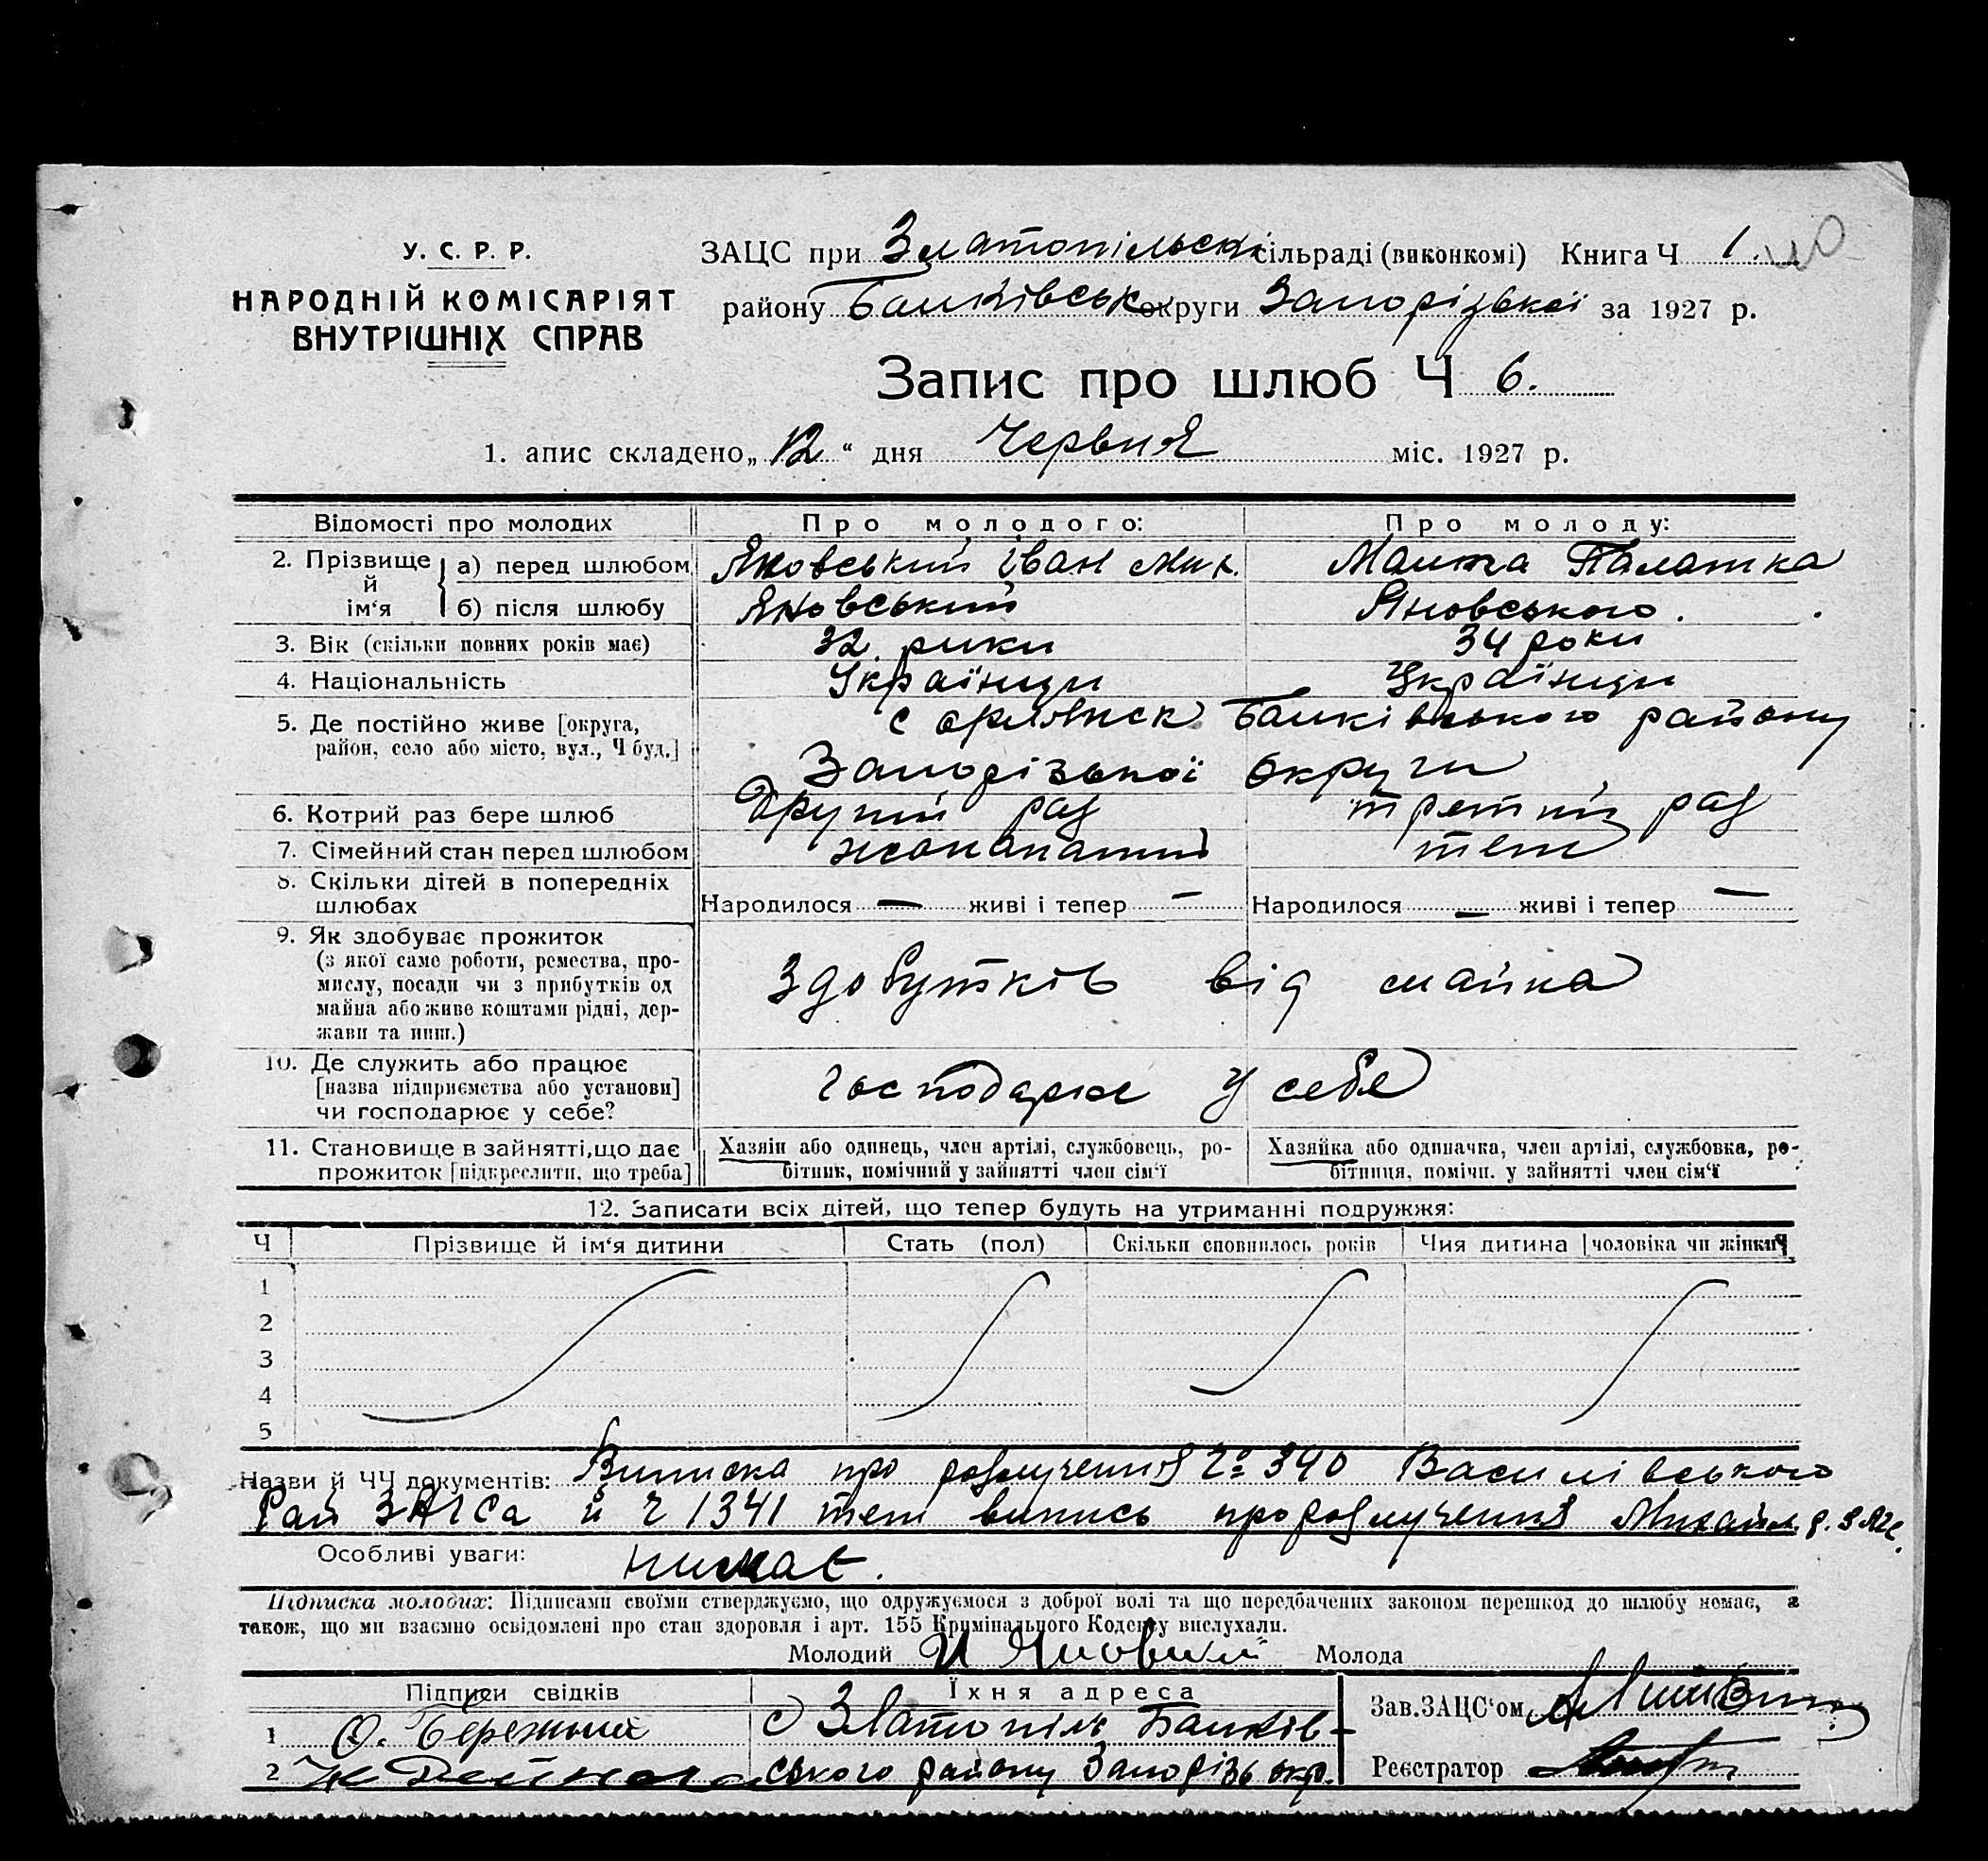 У. С. Р. Р.
НАРОДНІЙ КОМІСАРІЯТ
ВНУТРІШНІХ СПРАВ
ЗАЦС при Златопільскі сільраді (виконкомі) Книга Ч 1.
району Балківськ округи Запорізької за 1927 р.
Запис про шлюб Ч 6.
1. апис складено „12“ дня Червня міс. 1927 р.
Відомості про молодих Про молодого: Про молоду:
2. Прізвище й ім‘я а) перед шлюбом Яновський Іван Мих. Малта Палашка
б) після шлюбу Яновський Яновського.
3. Вік (скільки повних років має) 32 роки 34 роки
4. Національність Українци Українци
5. Де постійно живе [округа, район, село або місто, вул., Ч буд.] с Орлянск Балківського району
Запорізької округи
6. Котрий раз бере шлюб Другий раз третий раз
7. Сімейний стан перед шлюбом теж
8. Скільки дітей в попередніх шлюбах Народилося — живі і тепер — Народилося — живі і тепер —
9. Як здобуває прожиток
(з якої саме роботи, ремества, про-
мислу, посади чи з прибутків од
майна або живе коштами рідні, дер-
жави та инш.)
Здобутків від майна
10. Де служить або працює
[назва підприємства або установи]
чи господарює у себе?
господарює у себе
11. Становище в зайнятті, що дає
прожиток [підкреслити, що треба]
Хазяїн або одинець, член артілі, службовець, ро-
бітник, помічний у зайнятті член сім‘ї
Хазяйка або одиначка, член артілі, службовка, ро-
бітниця, помічн. у зайнятті член сім‘ї
12. Записати всіх дітей, що тепер будуть на утриманні подружжя:
Ч Прізвище й ім‘я дитини Стать (пол) Скільки сповнилось років Чия дитина [чоловіка чи жінки]
1
2
3
4
5
Назви й ЧЧ документів: Виписка про розлучення № 340 Василівського
Рай ЗАГСа й Ч 1341 теж випись про розлучення Михайл. р. ЗАГС.
Особливі уваги: нимає.
Підписка молодих: Підписами своїми стверджуємо, що одружуємося з доброї волі та що передбачених законом перешкод до шлюбу немає, а
також, що ми взаємно освідомлені про стан здоровля і арт. 155 Кримінального Кодексу вислухали.
Молодий И Яновський Молода
Підписи свідків Їхня адреса
1 О. Бережний с Златопіль Балків-
2 ського району Запорізь окр.
Зав. ЗАЦС‘ом
Реєстратор